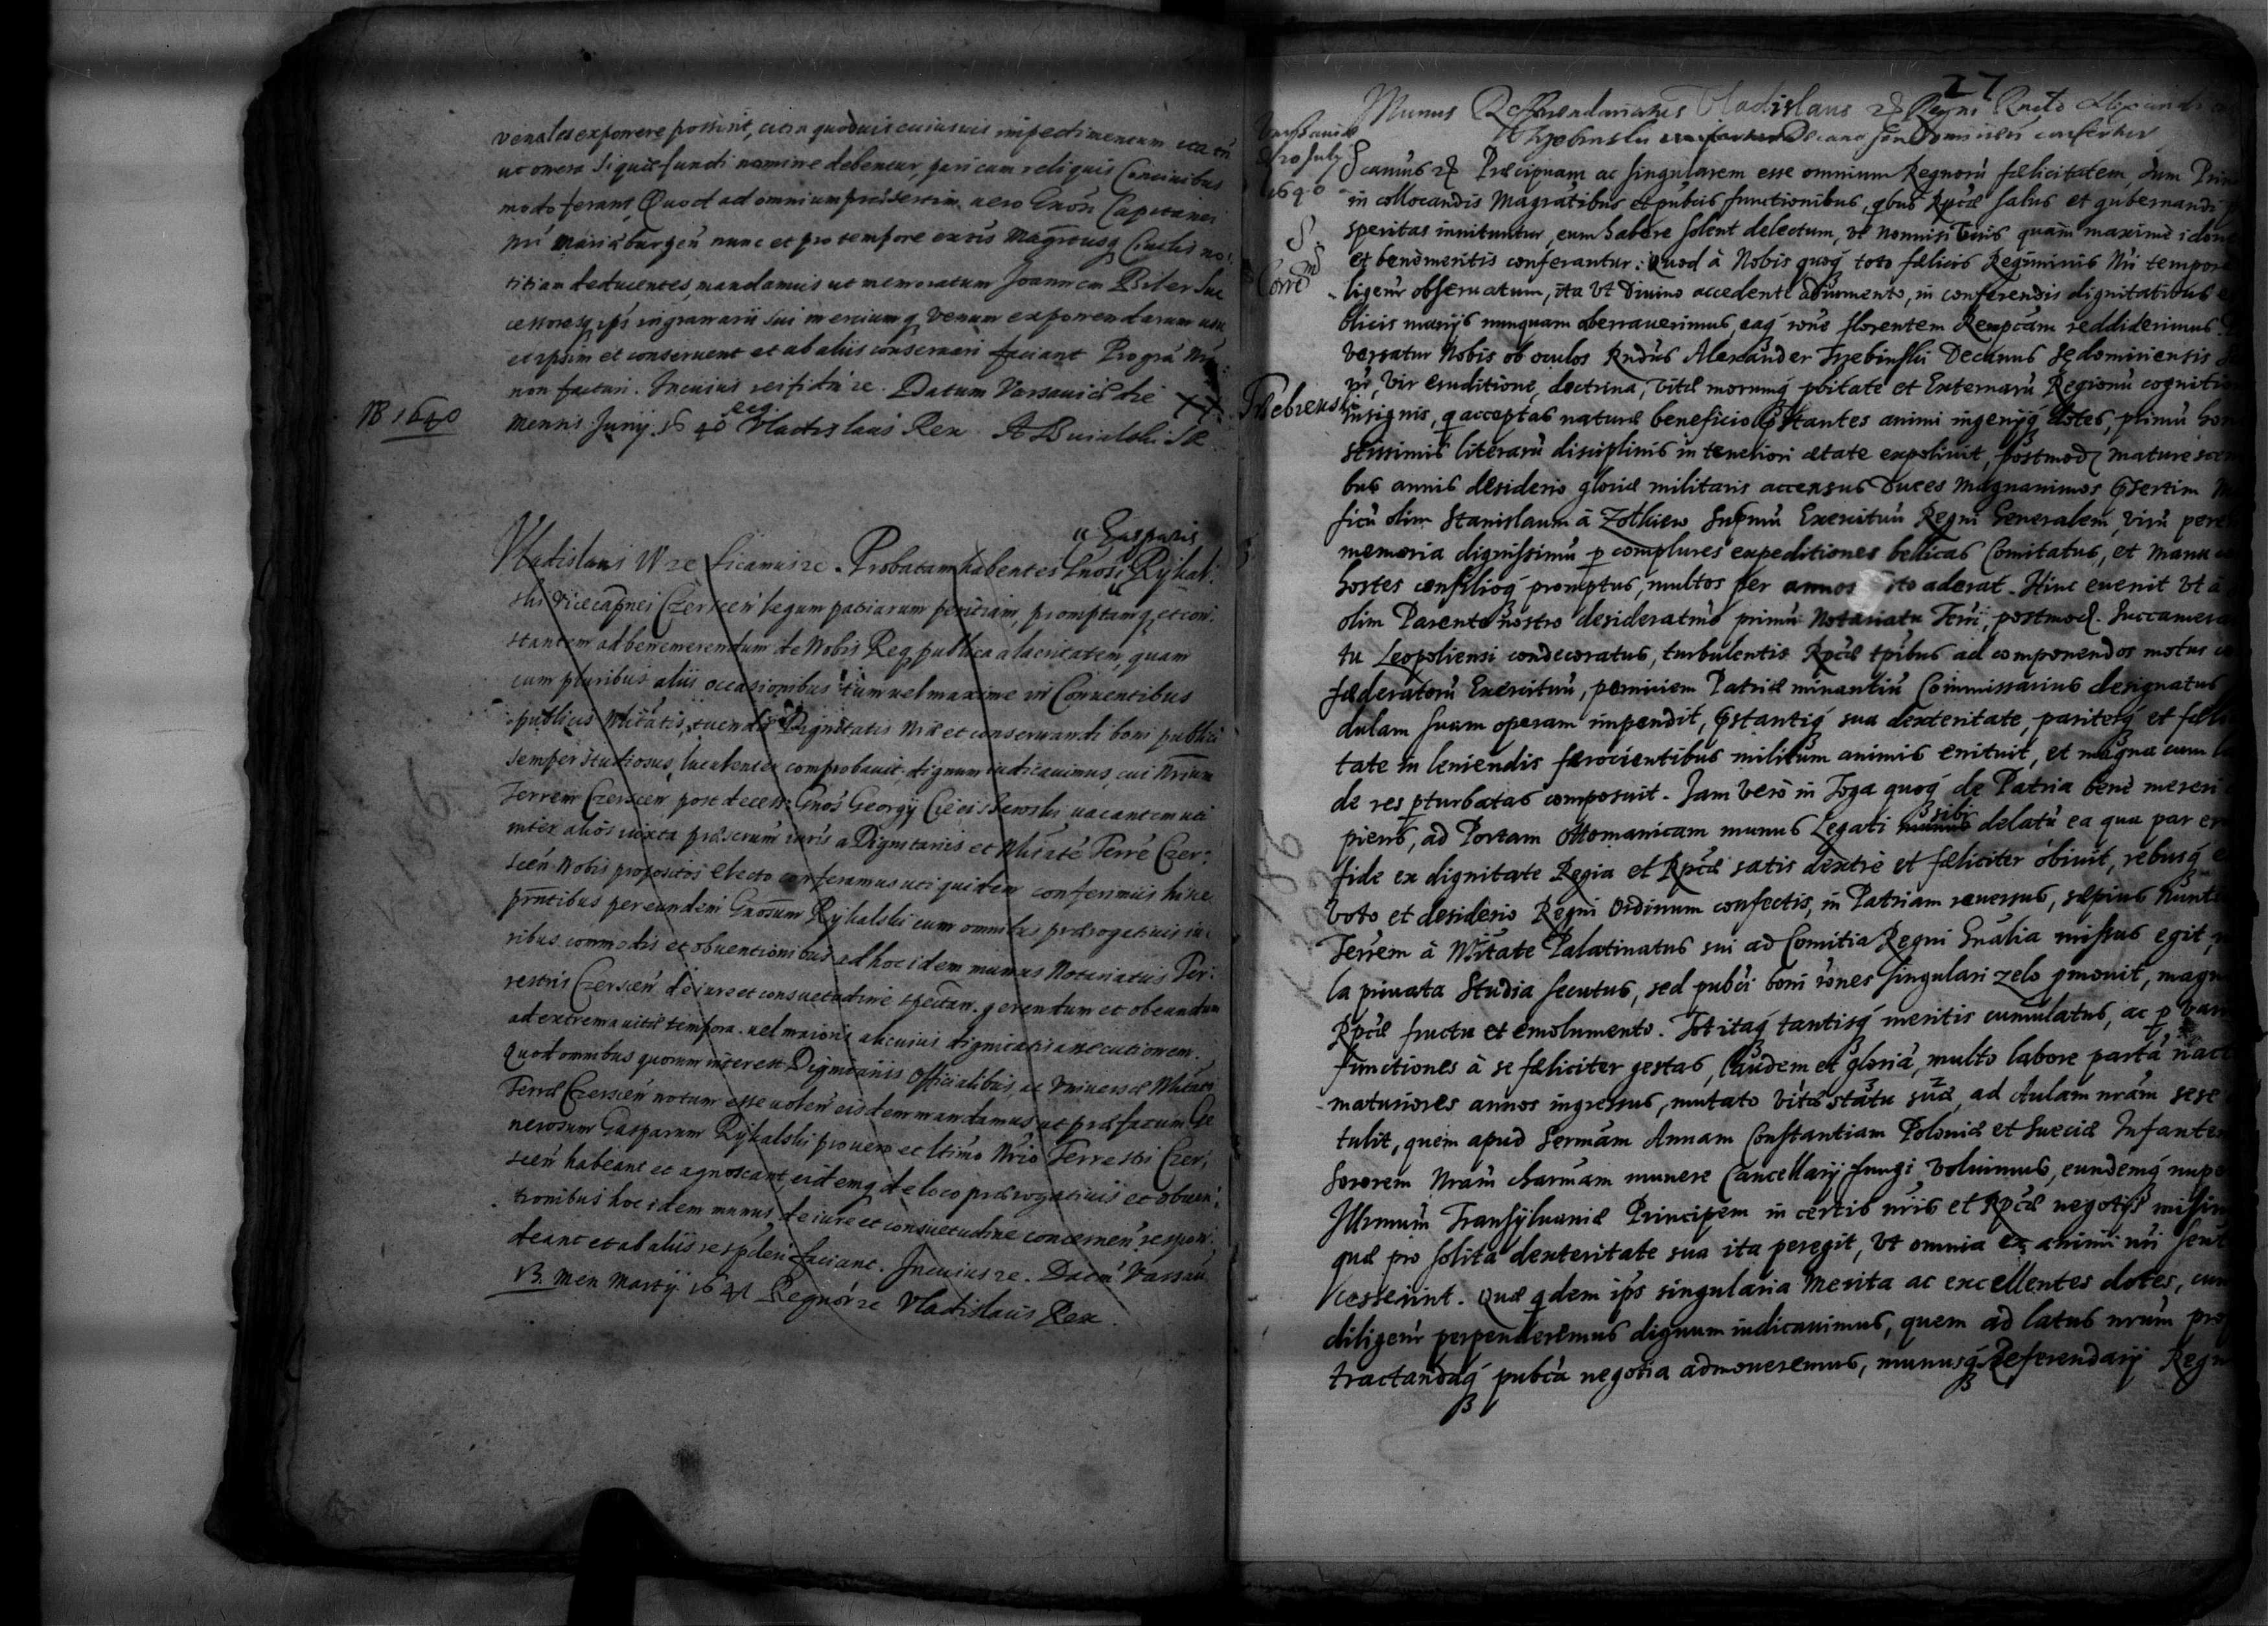 venales exponere possint, citra quoduis cuiusuis impedimentum ita tn
ut onera si quae fundi nomine debentur, pari cum reliquis Conciuibus
modo ferant, Quod ad omnium praesertim uero Gnosi Capitanei
nri Mariaeburgen nunc et pro tempore existis Magratusq Ciuilis no
titiam deducentes, mandamus ut memoratum Joannem Riter Suc
cessoresq ips in granarii sui merciumq venum exponendarum usu
et ipsim et conseruent et ab aliis conseruari faciant Pro gra Nra
non facturi. In cuius rei fidem re. Datum Varsauiae die XX.
Mensis Junij 1640 Reg. Vladislaus Rex
18 1640
Gasparis
Vladislaus IV re Sicamus re. Probatam habentes Gnosi Rykal:
ski Vicecapnei Czerscen legum patriarum peritiam, promptamq et con:
stantem ad benemerendum de Nobis Req publica alacritatem, quam
cum pluribus aliis occasionibus tum uel maxime in Conuentibus
publicis Nlitatis, tuendae Dignitatis Nrae et conseruandi boni publici
semper studiosus, luculenter comprobauit, dignum iudicauimus, cui Nrium
Terrem Czerscen post decess Gnosi Georgij vacantem uti
inter alios iuxta praescrum iuris a Dignitariis et Nlitate Terre Czer:
scen Nobis propositos electo conferamus uti quidem conferimus hisce
prntibus per eundem Gnosum Rykalski cum omnibus praerogatiuis iu:
ribus commodis et obuentionibus ad hoc idem munus Notariatus Ter:
restris Czerscen de iure et consuetudine spectan. gerendum et obeundum
ad extrema uitae tempora. uel maioris alicuius dignitatis assecutionem.
Quod omnibus quorum interest Dignitariis Officialibus, ac Vniuersae Nlitati
Terrae Czerscen notum esse uolen eisdem mandamus ut praefatum Ge
nerosum Gasparum Rykalski pro uero et ltimo Nrio Terrestri Czer:
scen habeant et agnoscant, eidemq de loco praerogatiuis et obuen:
tionibus hoc idem munus de iure et consuetudine concernen respon:
deant et ab aliis respderi faciant. In cuius re. Datm Varsau
13. Men Martij 1641 Regnor re Vladislaus Rex.
27
Munus Referendariatus Vladislaus Regni Rndo Alexandro
Trzebinski Decano Sendomirien confertur
Varsauiae
10 July
1640
Sicamus Praecipuam ac singularem esse omnium Regnoru faelicitatem, dum Prin
in collocandis Magratibus et pubcis functionibus, qbus Rptcae salus et gubernandi
speritas innituntur, eum habere solent delectum, vt nonnisi Viris quam maximè idone
et benèmeritis conferantur: Quod à Nobis quoq toto faelicis Regiminis Nri tempore
ligenr obseruatum, ita vt Diuino accedente adiumento, in conferendis dignitatibus
blicis munijs nunquam oberrauerimus, eaq rone florentem Rempcam reddiderimus.
Versatur Nobis ob oculos Rndus Alexander Trzebinski Decanus Sedomiriensis
Trzebinski
vir eruditione, doctrina, vitae morumq pbitate et Externaru Regionu cognitio
insignis, q acceptas naturae beneficio pstantes animi ingenijq dotes, primu hon
stissimis literaru disciplinis in teneliori aetate expoliuit, postmod maturescen
bus annis desiderio gloriae militaris accensus Duces Magnanimos psertim M
ficu olim Stanislaum à Zolkiew Supmu Exercituu Regni Generalem, viru peren
memoria dignissimu p complures expeditiones bellicas Comitatus, et manu
hostes consilioq promptus, multos per annos aderat. Hinc euenit vt à
olim Parente nostro desideratmo primu Notariatu Terri, postmod. Succamera
tu Leopoliensi condecoratus, turbulentis Rptcae tpibus ad componendos motus
faederatoru Exercituu, perniciem Patriae minantiu Commissarius designatus
dulam suam operam impendit, pstantiq sua dexteritate, pariterq et faeli
tate in leniendis faerocientibus militum animis enituit, et magna cum
de res pturbatas composuit. Jam verò in Toga quoq de Patria benè mereri
piens, ad Portam Ottomanicam munus Legati sibi delatu ea qua par er
fide ex dignitate Regia et Rptcae satis dextrè et faeliciter obiuit, rebusq
voto et desiderio Regni Ordinum confectis, in Patriam reuersus, saepius Nunti
Terrem à Nlitate Palatinatus sui ad Comitia Regni Gnalia missus egit,
la priuata studia secutus, sed pubci boni rones singulari zelo pmouit, magn
Rptcae fructu et emolumento. Tot itaq tantisq meritis cumulatus, ac p vari
functiones à se faeliciter gestas, laudem et gloria, multo labore parta nact
maturiores annos ingressus, mutato vitae statu suae, ad Aulam nram sese
tulit, quem apud Sermam Annam Constantiam Poloniae et Sueciae Infantem
Sororem Nram charmam munere Cancellarij fungi voluimus, eundemq nupe
Illrmum Transyluaniae Principem in certis nris et Rptcae negotijs missim
quae pro solita dexteritate sua ita peregit, vt omnia ex animi nri sent
cesserint. Quae qdem ips singularia merita ac excellentes dotes, cum
diligenr perpenderemus dignum iudicauimus, quem ad latus nrum prop
tractandaq pubca negotia admoueremus, munusq Referendarij Regn